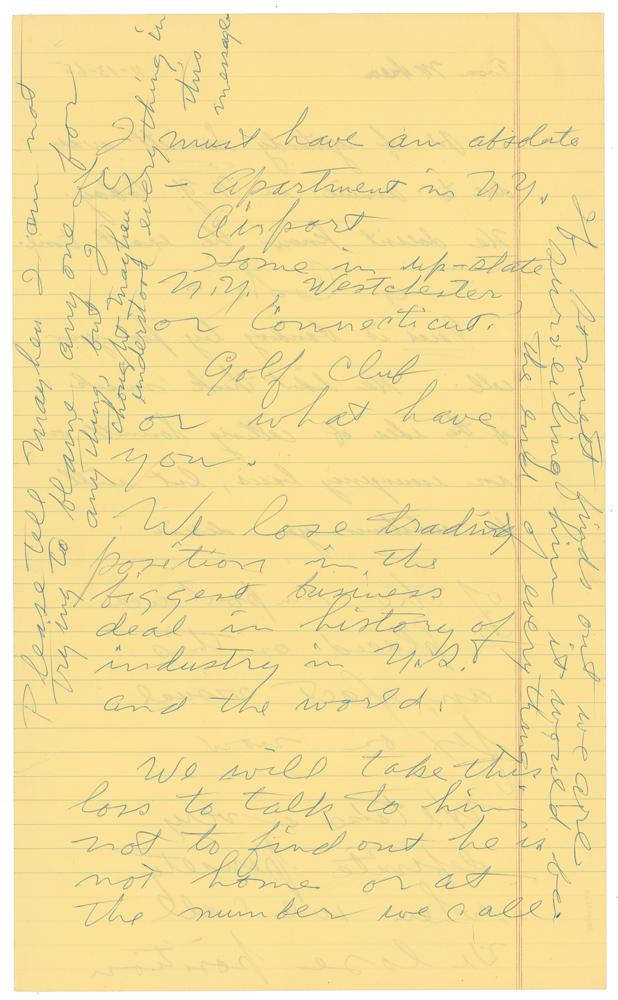 I must have an absolute
- Apartment in N.Y.
Airport
Home in up-state
N.Y., Westchester
or Connecticut.
Golf Club
or what have
you.
We lose trading
position in the
biggest business
deal in history of
industry in U.S.
and the world.
We will take this
loss to talk to him
not to find out he is
not home or at
the number we call.
If format finds out we are
surveiling him it would be
the end of everything
Please tell Mayheu I am not
trying to blame any one for
anything, but I
thought Mayheu
understood everything in
this
message